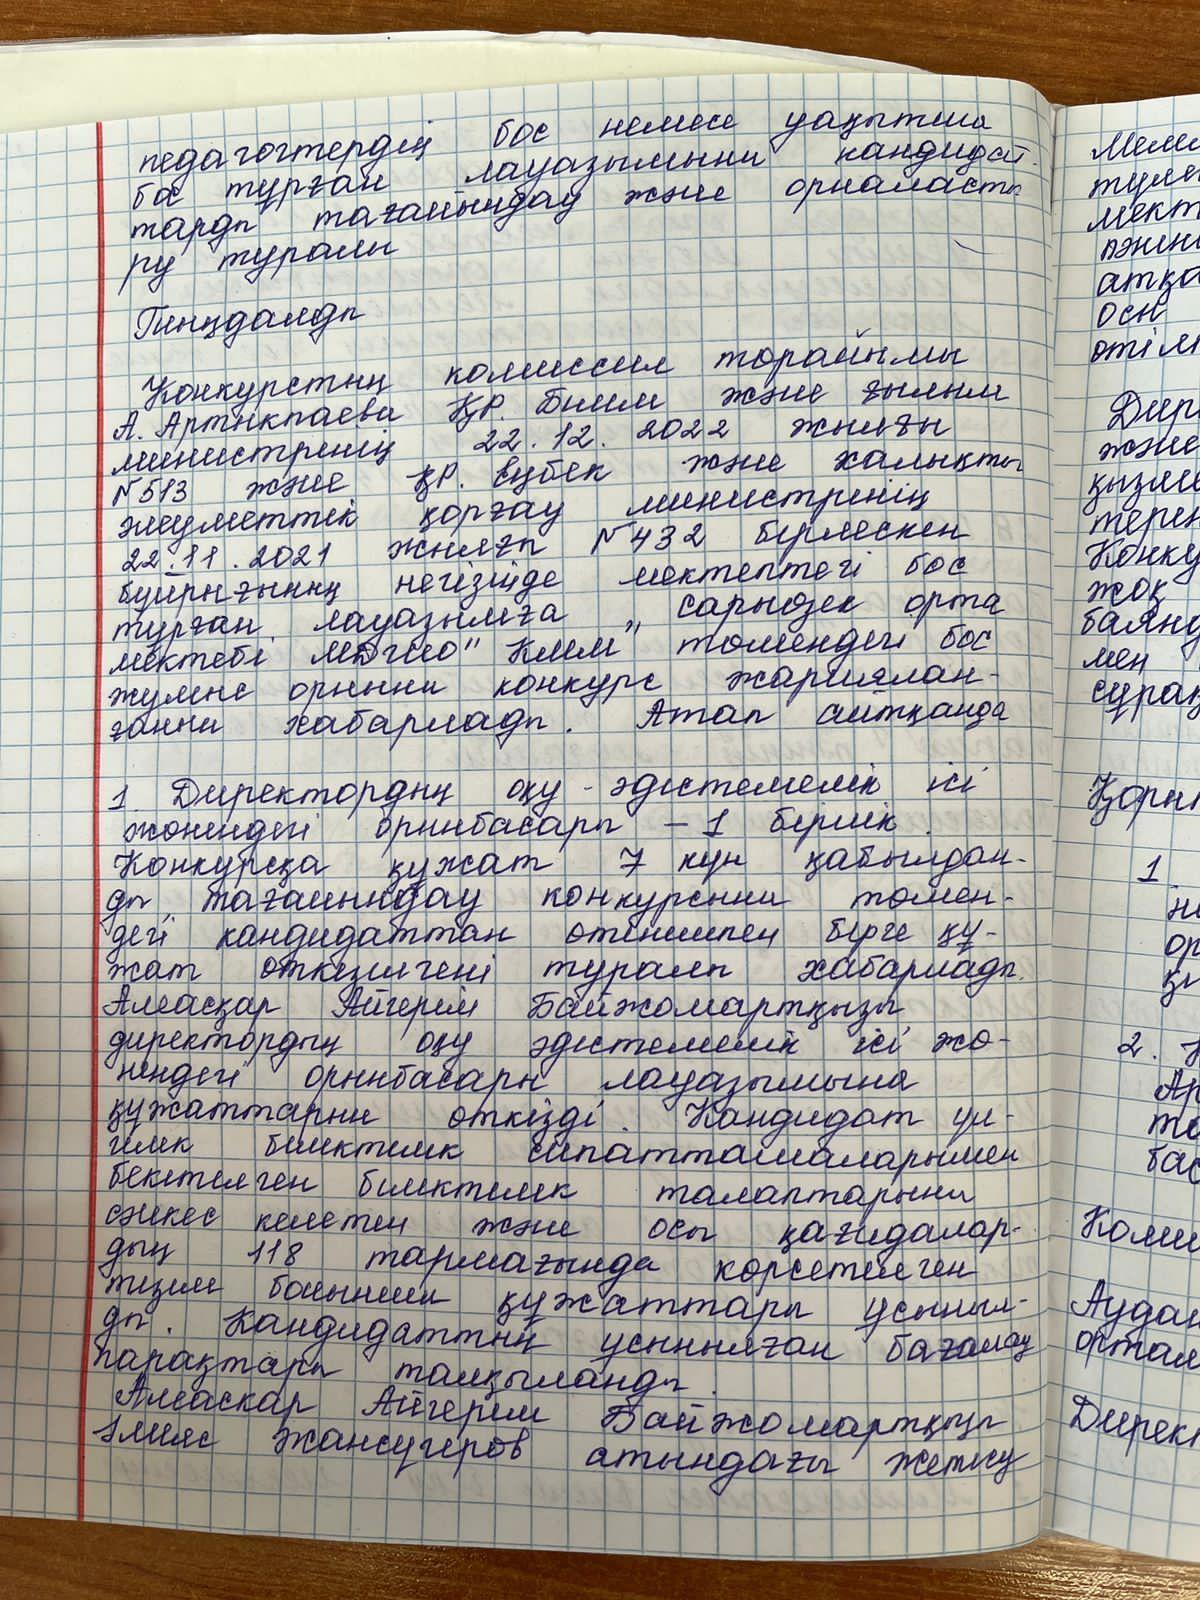 педагогтердің бос немесе уақытша
бос тұрған лауазымыни кандидат-
тарды тағайындау және орналасты
ру туралы
Тыңдалды
Конкурстың комиссия төрайымы
А. Артыкпаева ҚР. Білім және ғылым
министрінің 22.12.2022 жылғы
№513 және ҚР. Еңбек және халықты
әлеуметтік қорғау министрінің
22.11.2021 жылғы №432 бірлескен
бұйрығының негізінде мектептегі бос
тұрған лауазымға „ Сарыөзек орта
мектебі МДГШО" КММ" төмендегі бос
жұмыс орныни конкурс жариялан-
ғанни хабарлады. Атап айтқанда
1. Директордың оқу-әдістемелік ісі
жөніндегі орынбасары - 1 бірлік.
Конкурсқа құжат 7 күн қабылдан-
ды тағайындау конкурсыни төмен-
дегі кандидаттан өтінішпен бірге құ-
жат өткізілгені туралы хабарлады.
Алеасқар Айгерім Байжомартқызы
директордың оқу әдістемелік ісі жө-
ніндегі орынбасары лауазымына
құжаттарни өткізді. Кандидат үл-
гілік біліктілік сипаттамаларымен
бекітілген біліктілік талаптарыни
сәйкес келетін және осы қағидалар-
дың 118 тармағында көрсетілген
тізім бойынша құжаттары ұсыныл-
ды. Кандидаттың ұсынылған бағалау
парақтары талқыланды.
Алеаскар Айгерім Байжомартқызы
Ілияс Жансүгіров атындағы Жетісу
Дирек
және
Конку
жоқ
баянд
мен
сұрақ
1
2.
Коми
Аудан
ортал
Дирек